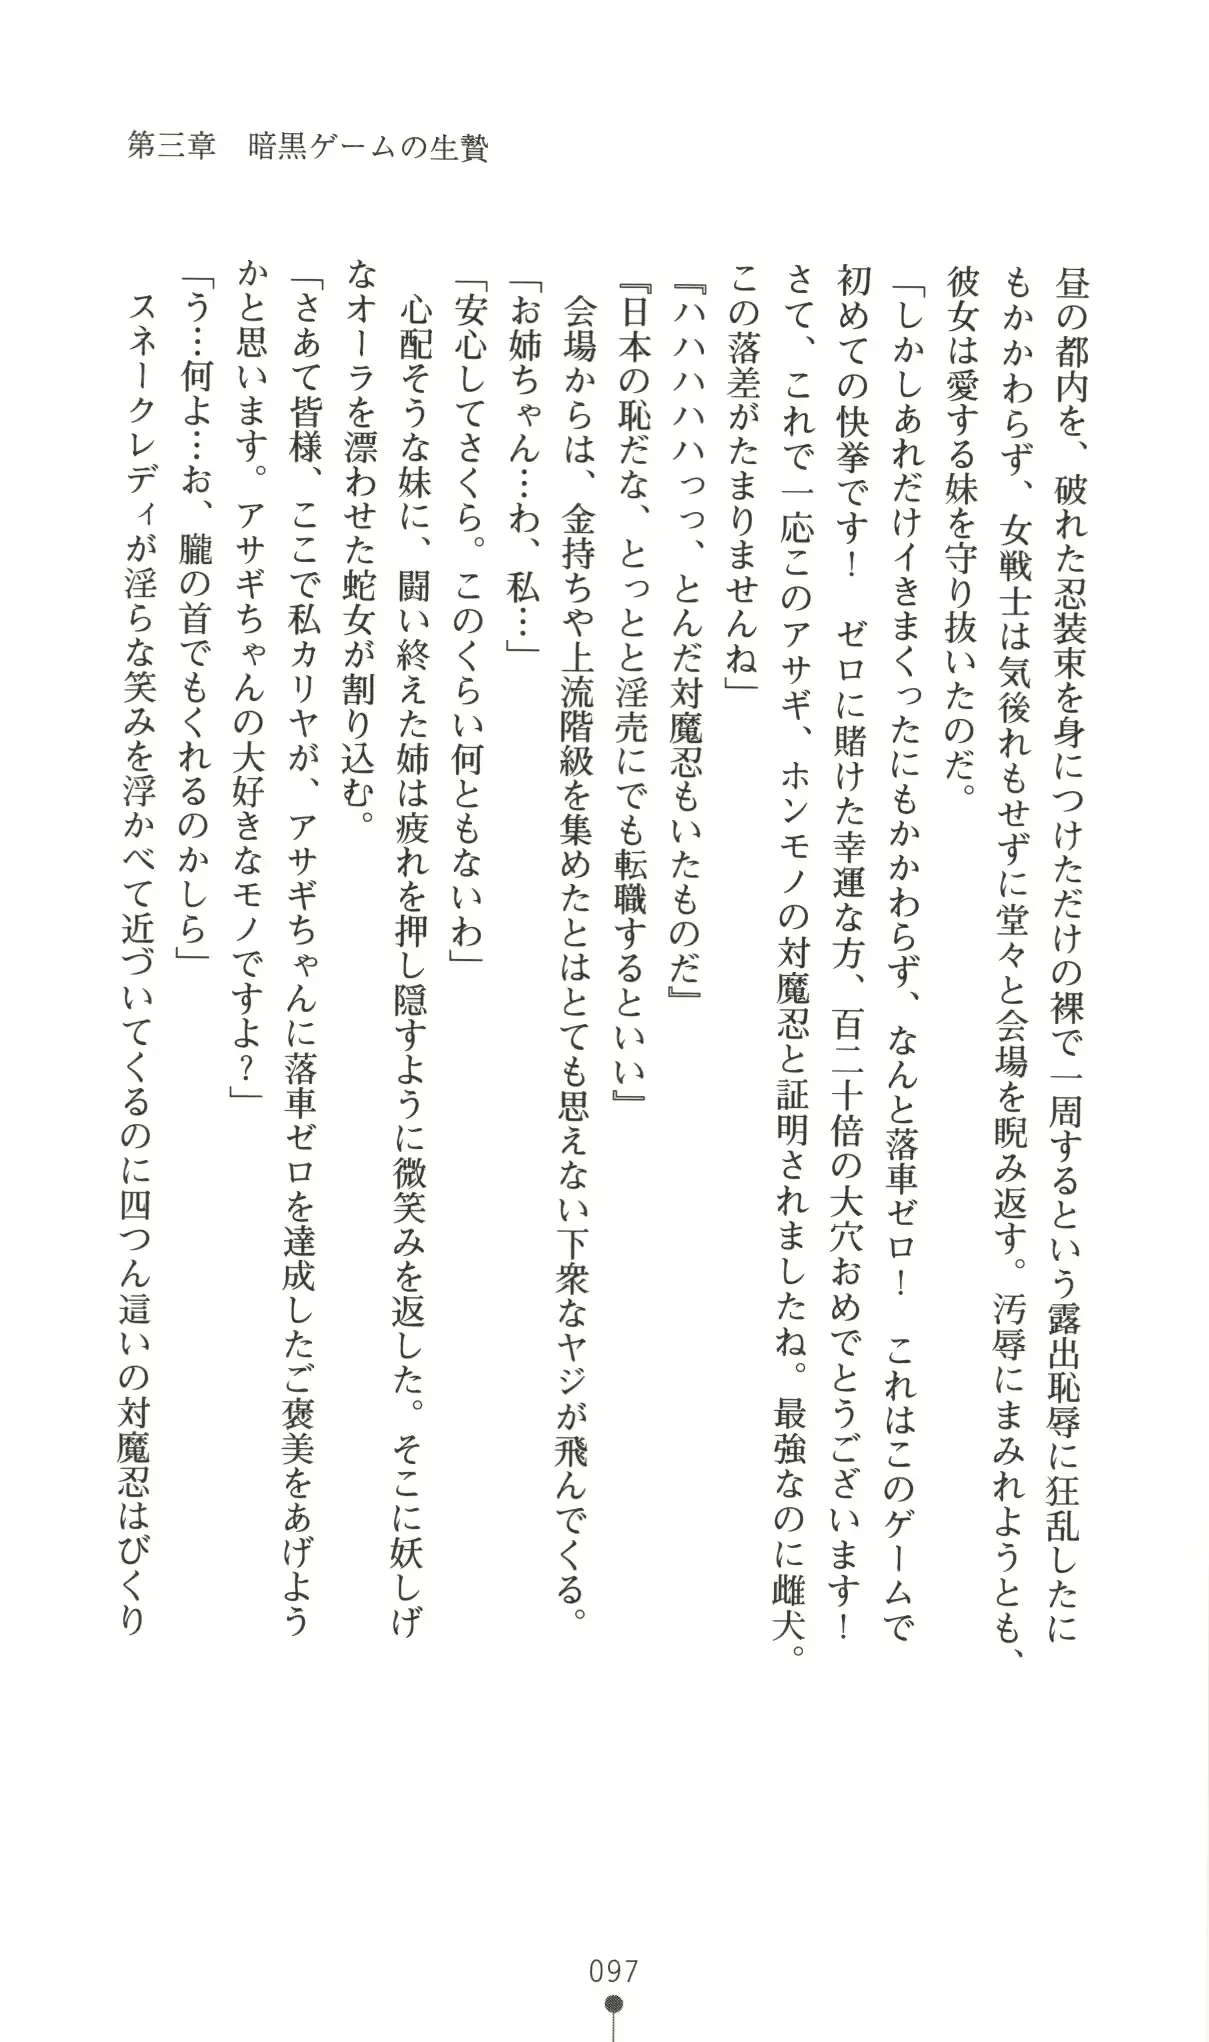 第三章　暗黒ゲームの生贄
昼の都内を、破れた忍装束を身につけただけの裸で一周するという露出恥辱に狂乱したに
もかかわらず、女戦士は気後れもせずに堂々と会場を睨み返す。汚辱にまみれようとも、
彼女は愛する妹を守り抜いたのだ。
「しかしあれだけイきまくったにもかかわらず、なんと落車ゼロ！　これはこのゲームで
初めての快挙です！　ゼロに賭けた幸運な方、百二十倍の大穴おめでとうございます！
さて、これで一応このアサギ、ホンモノの対魔忍と証明されましたね。最強なのに雌犬。
この落差がたまりませんね」
『ハハハハっっ、とんだ対魔忍もいたものだ』
『日本の恥だな、とっとと淫売にでも転職するといい』
　会場からは、金持ちや上流階級を集めたとはとても思えない下衆なヤジが飛んでくる。
「お姉ちゃん…わ、私…」
「安心してさくら。このくらい何ともないわ」
　心配そうな妹に、闘い終えた姉は疲れを押し隠すように微笑みを返した。そこに妖しげ
なオーラを漂わせた蛇女が割り込む。
「さあて皆様、ここで私カリヤが、アサギちゃんに落車ゼロを達成したご褒美をあげよう
かと思います。アサギちゃんの大好きなモノですよ？」
「う…何よ…お、朧の首でもくれるのかしら」
　スネークレディが淫らな笑みを浮かべて近づいてくるのに四つん這いの対魔忍はびくり
097